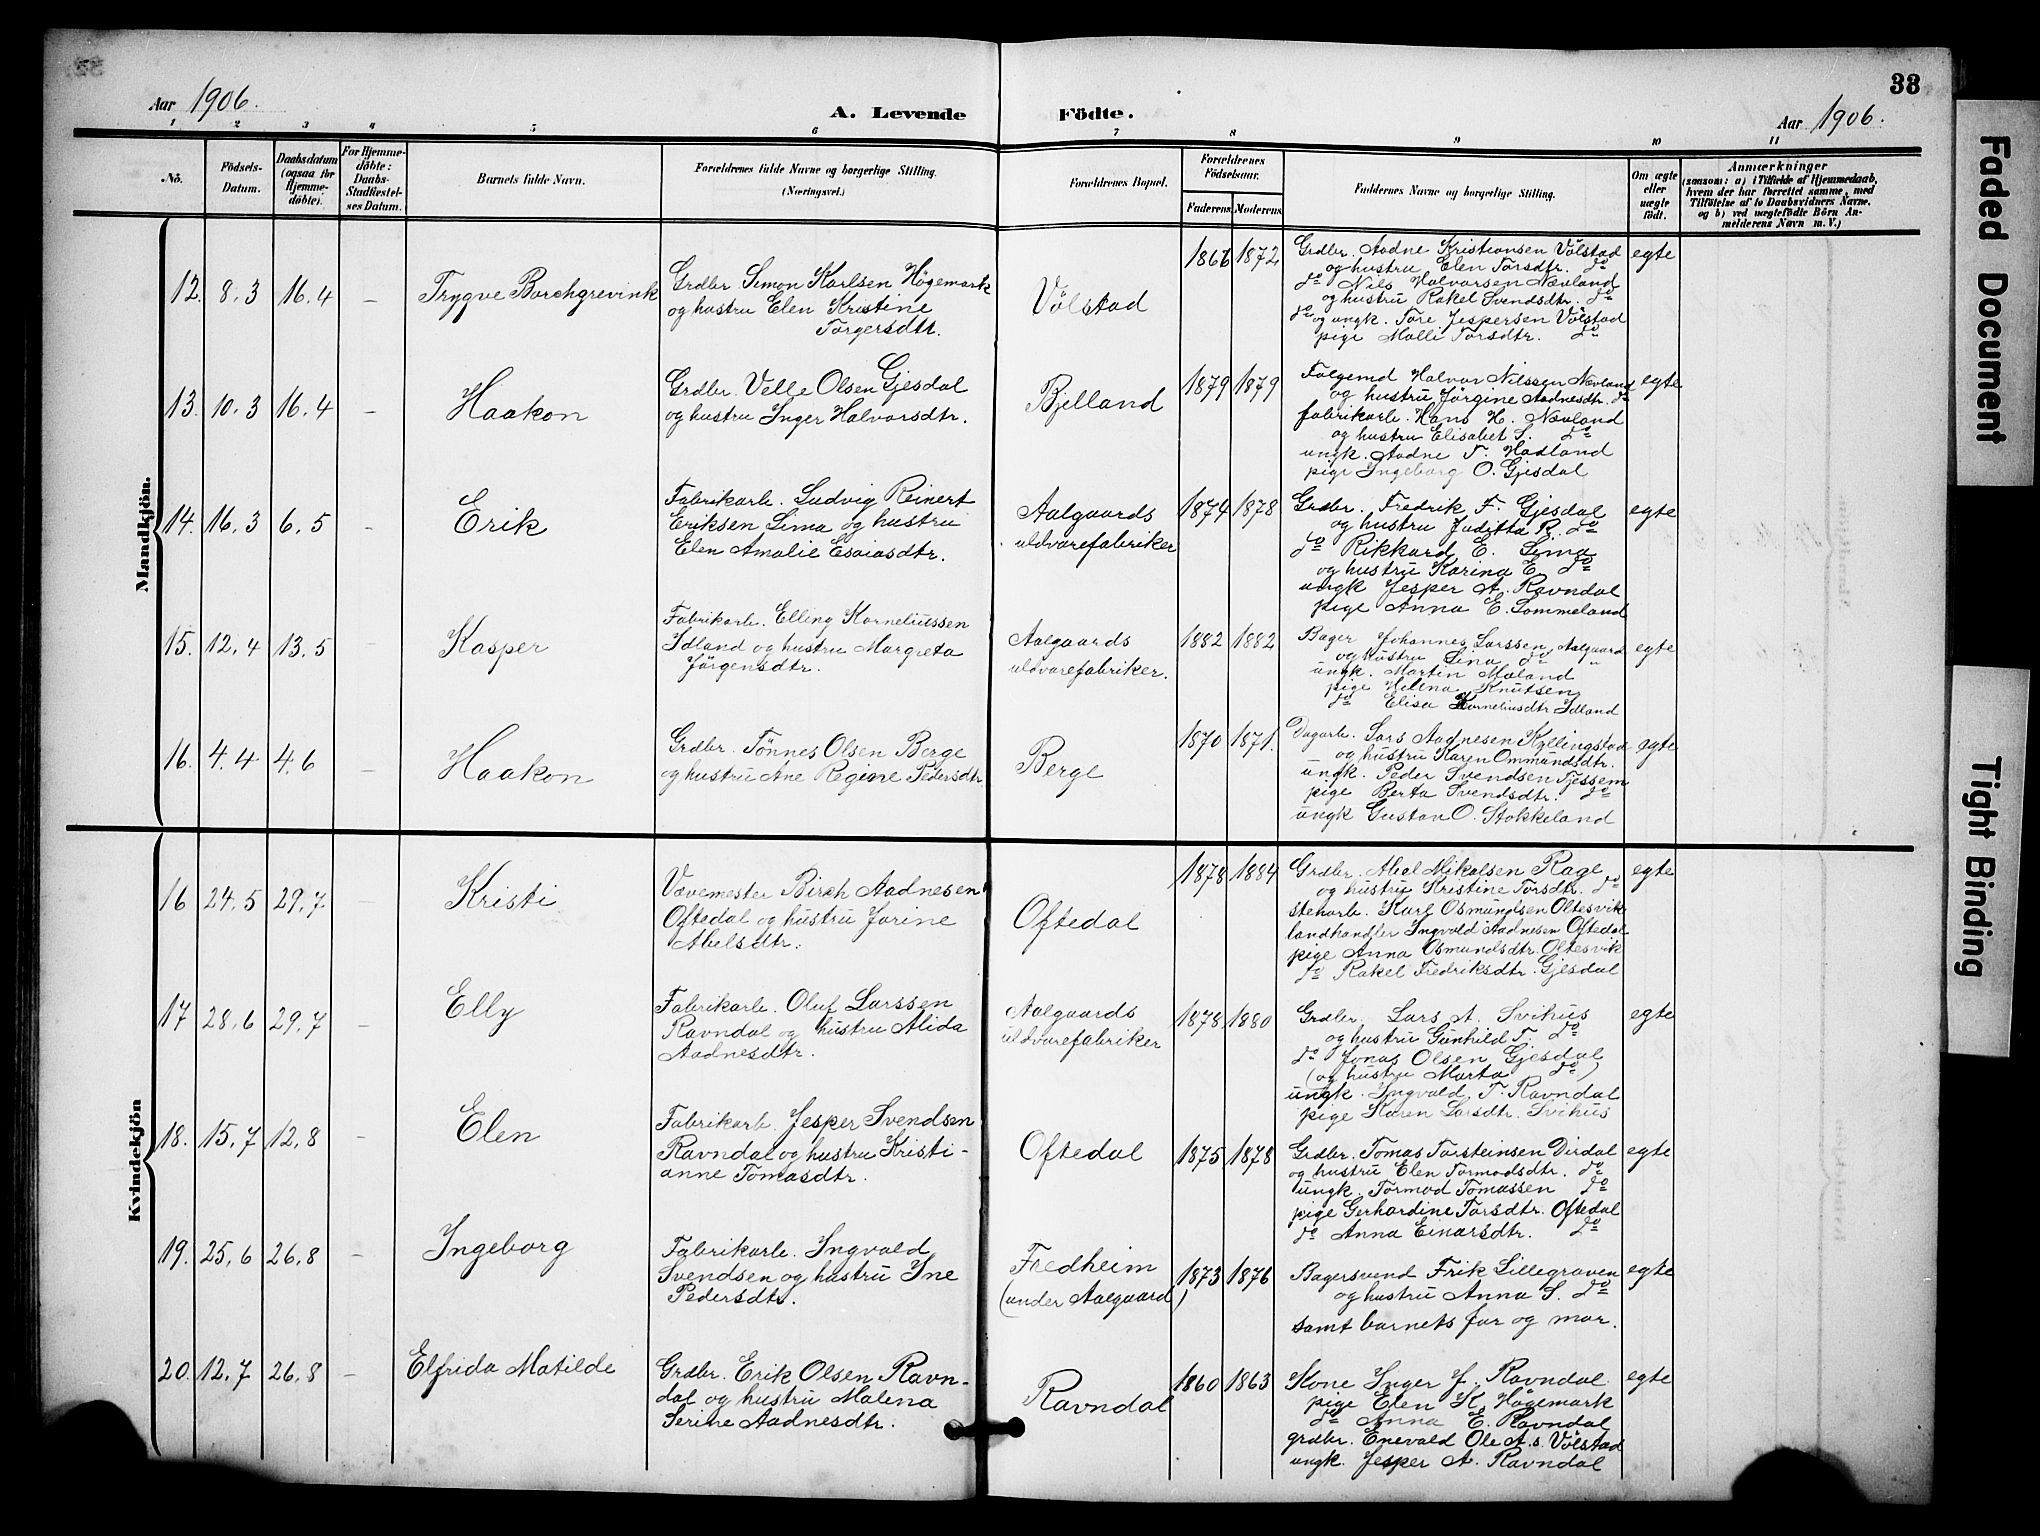 38
Aar 1906.
A. Levende Födte.
Aar 1906.
1 2 3 4 5 6 7 8 9 10 11
No.
Födsels-Datum.
Daabsdatum (ogsaa for Hjemme-döbte).
For Hjemme-döbte: Daabs-Stadfæstel-ses Datum.
Barnets fulde Navn.
Forældrenes fulde Navne og borgerlige Stilling. (Næringsvei.)
Forældrenes Bopæl.
Forældrenes Födselsaar.
Faderens Moderens
Faddernes Navne og borgerlige Stilling.
Om ægte eller uægte födt.
Anmærkninger
(saasom: a) i Tilfælde af Hjemmedaab, hvem der har forrettet samme, med Tilföielse af to Daabsvidners Navne. og b) ved uægtefödte Börn An-melderens Navn m. V.)
Mandkjön.
12. 8.3 16.4 – Trygve Borchgrevink
Grdbr. Simon Karlsen Högemark
og hustru Elen Kristine
Torgersdtr.
Völstad
1866 1872
Grdbr. Aadne Kristiansen Völstad
og hustru Elen Torsdtr. do
do Nils Halvorsen Nævland
og hustru Rakel Svendsdtr. do
do og ungk. Tore Jespersen Völstad
pige Malli Torsdtr. do
egte
13. 10.3 16.4 – Haakon
Grdbr. Velle Olsen Gjesdal
og hustru Inger Halvorsdtr.
Bjelland
1879 1879
Folgemd Halvor Nilssen Nævland
og hustru Jörgine Aadnesdtr. do
fabrikarb. Hans H. Nævland
og hustru Elisabet S. do
ungk. Aadne T. Hadland
pige Ingeborg O. Gjesdal
egte
14. 16.3 6.5 – Erik
Fabrikarb. Ludvig Reinert
Eriksen Lima og hustru
Elen Amalie Esaiasdtr.
Aalgaards
uldvarefabriker
1874 1878
Grdbr. Fredrik F. Gjesdal
og hustru Juditta R. do
do Rikkard E. Lima
og hustru Karina E. do
ungk Jesper A. Ravndal
pige Anna E. Sommeland
egte
15. 12.4 13.5 – Kasper
Fabrikarb. Elling Korneliussen
Idland og hustru Margreta
Jörgensdtr.
Aalgaards
uldvarefabriker.
1882 1882
Bager Johannes Larssen, Aalgaard
og hustru Lina do "
ungk. Martin Mæland
pige Helena Knutsen
do Elisa Korneliusdtr Idland
egte
16. 4.4 4.6 – Haakon
Grdbr. Tønnes Olsen Berge
og hustru Ane Regine Pedersdtr
Berge
1870 1871.
Dagarb. Lars Aadnesen Kyllingstad
og hustru Karen Ommundsdtr.
ungk. Peder Svendsen Tjessem
pige Berta Svendsdtr. do
ungk Gustav O. Stokkeland
egte
Kvindekjön
16 24.5 29.7 – Kristi
Vævemester Birch Aadnesen
Oftedal og hustru Jorine
Abelsdtr.
Oftedal
1878 1884
Grdbr. Abel Mikalsen Rage
og hustru Kristine Torsdtr. do
stenarb. Karl Osmundsen Oltesvik
landhandler Ingvald Aadnesen Oftedal
pige Anna Osmundsdtr. Oltesvik
do Rakel Fredriksdtr. Gjesdal
egte
17 28.6 29.7 – Elly
Fabrikarb. Oluf Larssen
Ravndal og hustru Alida
Aadnesdtr.
Aalgaards
uldvarefabriker
1878 1880
Grdbr. Lars A. Svihus
og hustru Gunhild T. do
do Jonas Olsen Gjesdal
(og hustru Marta do)
ungk. Ingvald T. Ravndal
pige Karen Larsdtr. Svihus
egte
18. 15.7 12.8 – Elen
Fabrikarb. Jesper Svendsen
Ravndal og hustru Kristi-
anne Tomasdtr.
Oftedal
1875 1878
Grdbr. Tomas Torsteinsen Dirdal
og hustru Elen Tormodsdtr. do
ungk. Tormod Tomassen do
pige Gerhardine Torsdtr. Oftedal
do Anna Einarsdtr. do
egte
19. 25.6 26.8 – Ingeborg
Fabrikarb. Ingvald
Svendsen og hustru Ine
Pedersdtr.
Fredheim
(under Aalgaard)
1873 1876
Bagersvend Erik Lillegraven
og hustru Anna S. do
samt barnets far og mor.
egte
20. 12.7 26.8 – Elfrida Matilde
Grdbr. Erik Olsen Ravn-
dal og hustru Malena
Serine Aadnesdtr.
Ravndal
1860 1863
Kone Inger J. Ravndal
pige Elen K. Högemark
do Anna E. Ravndal
grdbr. Enevald Ole A.s. Völstad
ungk. Jesper A. Ravndal
egte
Faded Document
Tight Binding